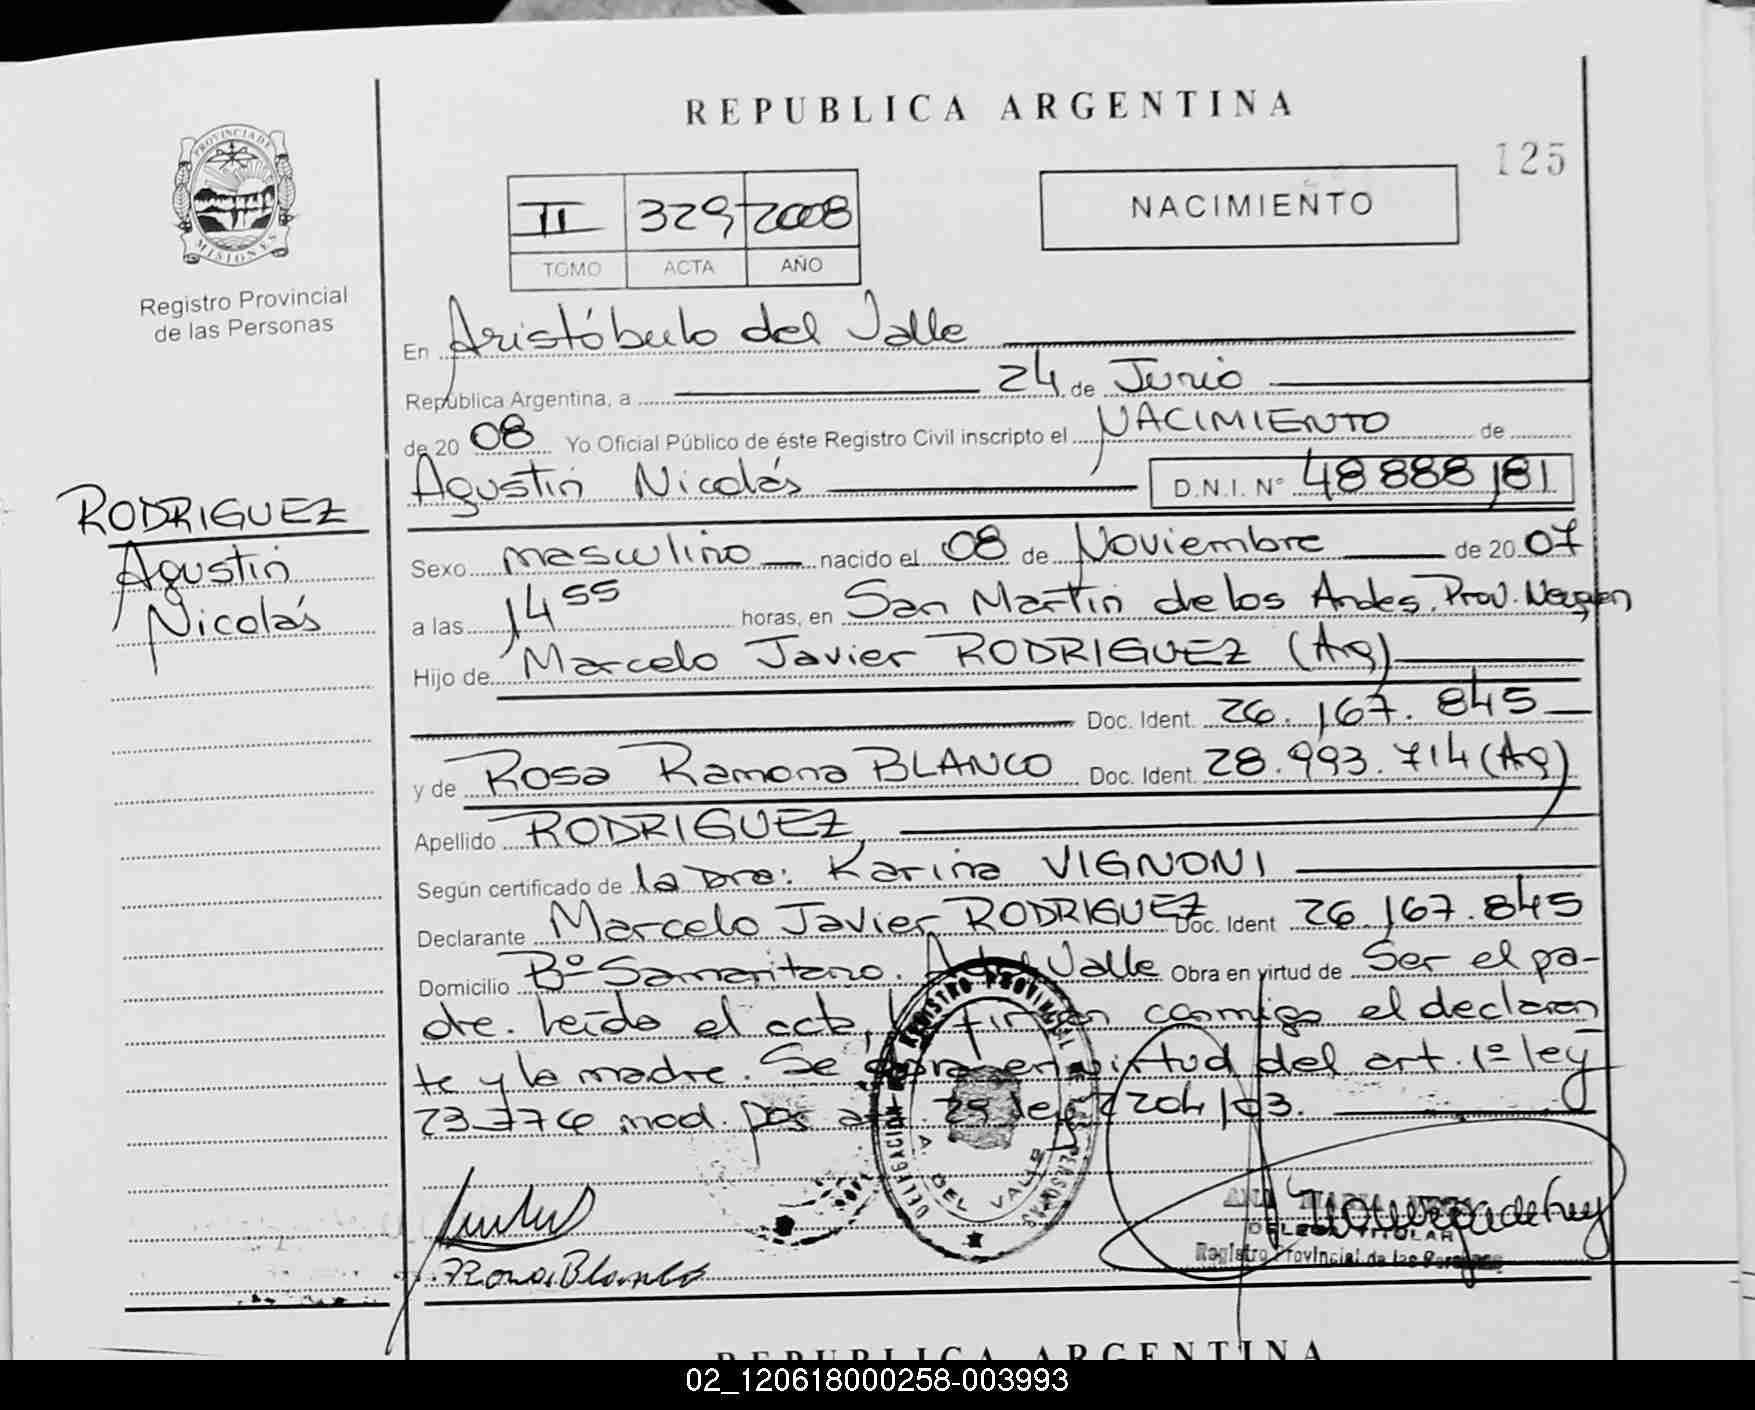 REPUBLICA ARGENTINA
125
PROVINCIA DE
MISIONES
Registro Provincial
de las Personas
II 329 2008
TOMO ACTA AÑO
NACIMIENTO
En Aristóbulo del Valle
República Argentina, a 24 de Junio
de 20 08 Yo Oficial Público de éste Registro Civil inscripto el NACIMIENTO de
Agustin Nicolás D.N.I. Nº 48 888 181
RODRIGUEZ
Agustin
Nicolás
Sexo masculino nacido el 08 de Noviembre de 20 07
a las 14 55 horas, en San Martin de los Andes. Prov. Neuquen
Hijo de Marcelo Javier RODRIGUEZ (Arg)
Doc. Ident. 26.167.845
y de Rosa Ramona BLANCO Doc. Ident. 28.993.714 (Arg)
Apellido RODRIGUEZ
Según certificado de la Dra: Karina VIGNONI
Declarante Marcelo Javier RODRIGUEZ Doc. Ident 26.167.845
Domicilio Bº Samaritano. A. del Valle Obra en virtud de Ser el pa-
dre. Leída el acta, la firman conmigo el declaran
te y la madre. Se obra en virtud del art. 1º ley
23.776 mod. por art. 29 ley 2204/03.
REGISTRO PROVINCIAL DE LAS PERSONAS
DELEGACION
A. DEL VALLE
Rosa Blanco
DELEG. TITULAR
Registro Provincial de las Personas
REPUBLICA ARGENTINA
02_120618000258-003993